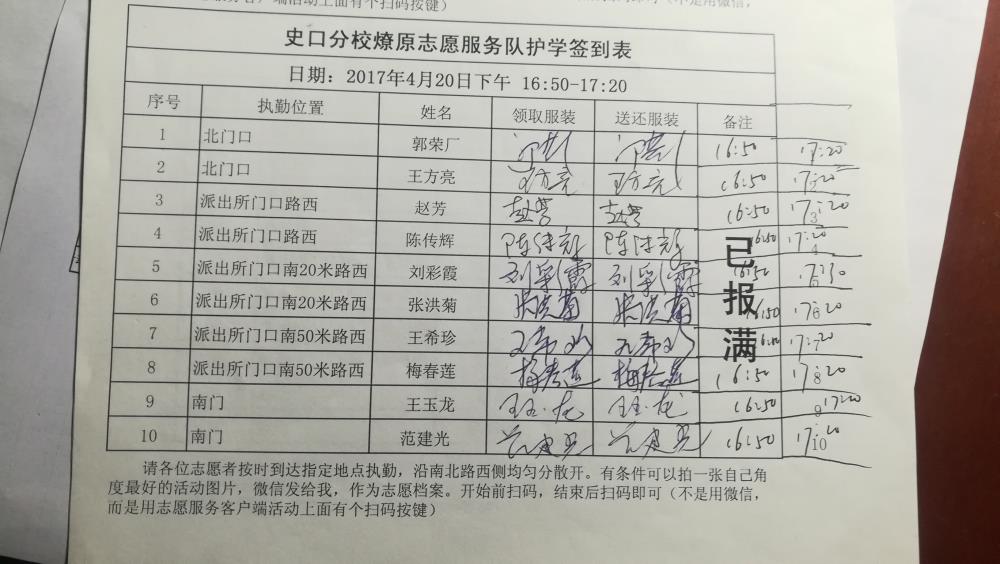 服务客户端活动上面有个扫码按键）
史口分校燎原志愿服务队护学签到表
日期：2017年4月20日下午 16:50-17:20
序号 执勤位置 姓名 领取服装 送还服装 备注
1 北门口 郭荣厂 16:50 17:20
2 北门口 王方亮 王方亮 王方亮 16:50 17:20
3 派出所门口路西 赵芳 赵芳 赵芳 16:50 17:20
4 派出所门口路西 陈传辉 陈传辉 陈传辉 16:50 17:20
5 派出所门口南20米路西 刘彩霞 刘彩霞 刘彩霞 16:50
6 派出所门口南20米路西 张洪菊 张洪菊 张洪菊 16:50 17:20
7 派出所门口南50米路西 王希珍 王希珍 王希珍 17:20
8 派出所门口南50米路西 梅春莲 梅春莲 梅春莲 16:50 17:20
9 南门 王玉龙 王玉龙 王玉龙 16:50 17:20
10 南门 范建光 范建光 范建光 16:50 17:20
已报满
请各位志愿者按时到达指定地点执勤，沿南北路西侧均匀分散开。有条件可以拍一张自己角
度最好的活动图片，微信发给我，作为志愿档案。开始前扫码，结束后扫码即可（不是用微信，
而是用志愿服务客户端活动上面有个扫码按键）